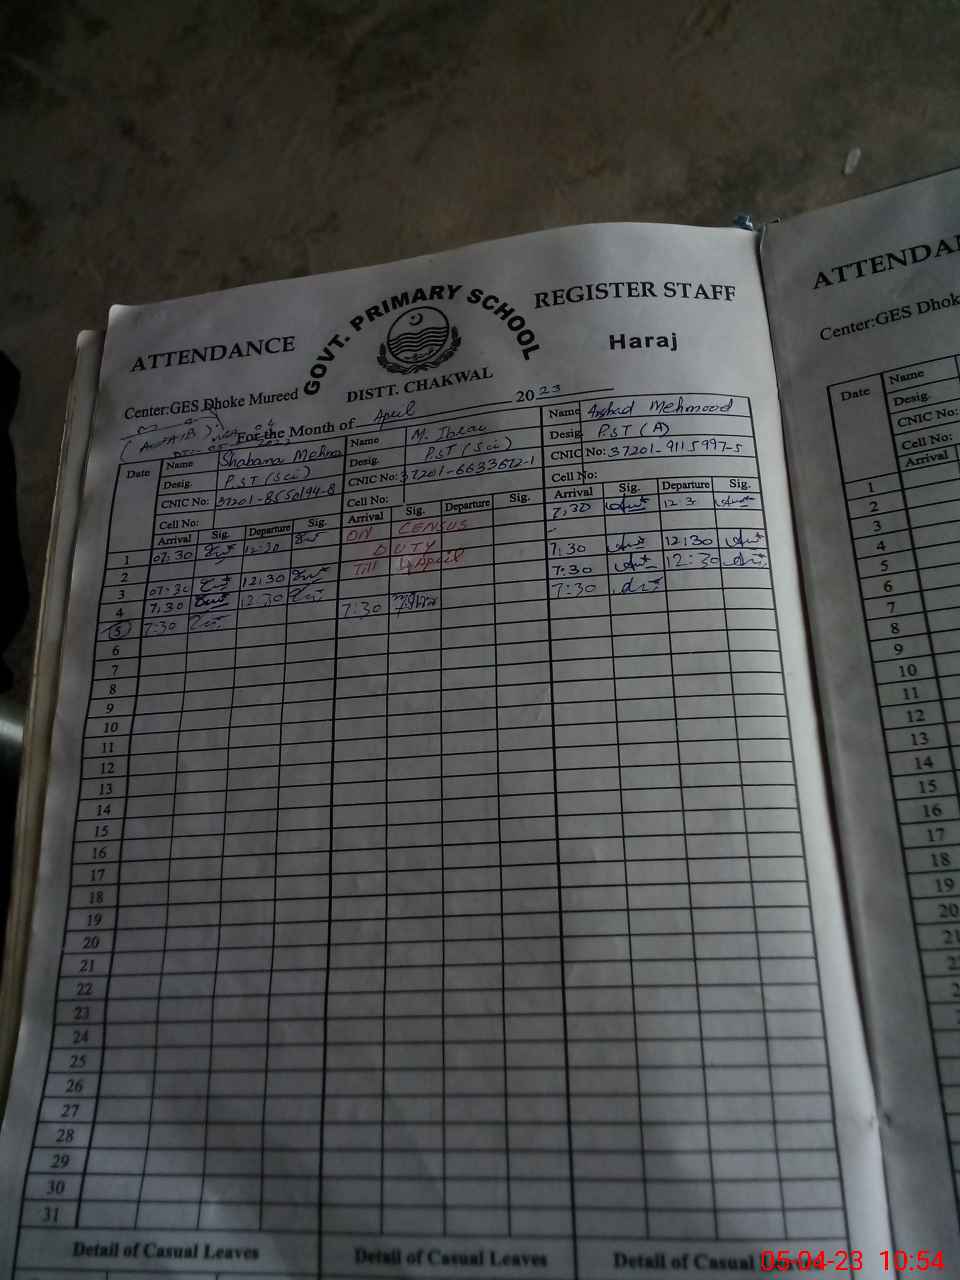 ATTENDANCE GOVT. PRIMARY SCHOOL REGISTER STAFF
Haraj
DISTT. CHAKWAL
Center:GES Dhoke Mureed
For the Month of April 2023
Date Name Shabana Name M. Name Arshad Mehmood
Desig. P.ST (Sci) Desig. P.ST (Sci) Desig. P.ST (A)
CNIC No: CNIC No: 37201-6633672-1 CNIC No: 37201-9115997-5
Cell No: Cell No: Cell No:
Arrival Sig. Departure Sig. Arrival Sig. Departure Sig. Arrival Sig. Departure Sig.
1 07:30 12:30 ON CENSUS 7:30 12:3
2 DUTY
3 07:30 12:30 Till April 7:30 12:30
4 7:30 12:30 7:30 12:30
5 7:30 7:30 7:30
6
7
8
9
10
11
12
13
14
15
16
17
18
19
20
21
22
23
24
25
26
27
28
29
30
31
Detail of Casual Leaves Detail of Casual Leaves Detail of Casual
ATTENDA
Center:GES Dhok
Date Name
Desig.
CNIC No:
Cell No:
Arrival
1
2
3
4
5
6
7
8
9
10
11
12
13
14
15
16
17
18
19
20
05-04-23 10:54